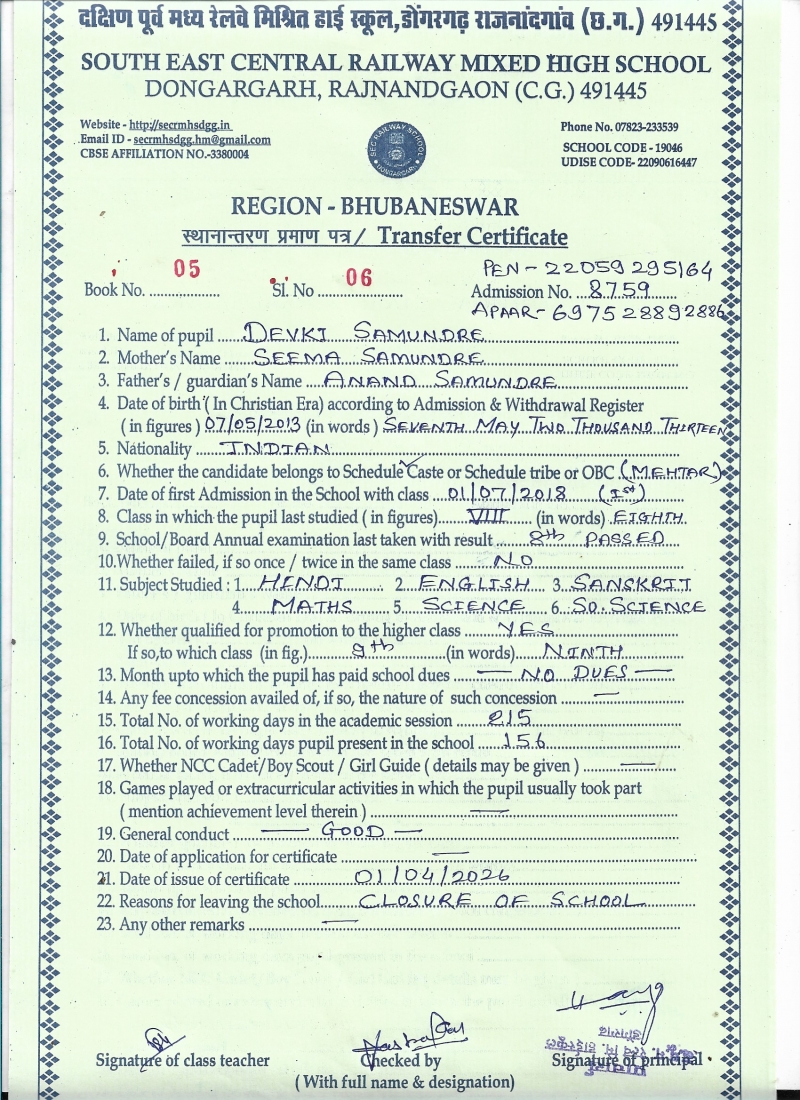 दक्षिण पूर्व मध्य रेलवे मिश्रित हाई स्कूल,डोंगरगढ़ राजनांदगांव (छ.ग.) 491445
SOUTH EAST CENTRAL RAILWAY MIXED HIGH SCHOOL
DONGARGARH, RAJNANDGAON (C.G.) 491445
Website - http://secrmhsdgg.in
Email ID - secrmhsdgg.hm@gmail.com
CBSE AFFILIATION NO.-3380004
SEC RAILWAY SCHOOL
DONGARGARH
Phone No. 07823-233539
SCHOOL CODE - 19046
UDISE CODE- 22090616447
REGION - BHUBANESWAR
स्थानान्तरण प्रमाण पत्र / Transfer Certificate
PEN - 22059295164
Book No. 05 Sl. No 06 Admission No. 8759
APAAR- 697528892886
1. Name of pupil DEVKI SAMUNDRE
2. Mother's Name SEEMA SAMUNDRE
3. Father's / guardian's Name ANAND SAMUNDRE
4. Date of birth ( In Christian Era) according to Admission & Withdrawal Register
( in figures ) 07/05/2013 (in words ) SEVENTH MAY TWO THOUSAND THIRTEEN
5. Nationality INDIAN
6. Whether the candidate belongs to Schedule ✓Caste or Schedule tribe or OBC (MEHTAR)
7. Date of first Admission in the School with class 01/07/2018 (Ist)
8. Class in which the pupil last studied ( in figures) VIII (in words) EIGHTH
9. School/Board Annual examination last taken with result 8th PASSED
10.Whether failed, if so once / twice in the same class NO
11. Subject Studied : 1. HINDI 2. ENGLISH 3. SANSKRIT
4. MATHS 5. SCIENCE 6. SO. SCIENCE
12. Whether qualified for promotion to the higher class YES
If so,to which class (in fig.) 9th (in words) NINTH
13. Month upto which the pupil has paid school dues — NO DUES —
14. Any fee concession availed of, if so, the nature of such concession —
15. Total No. of working days in the academic session 215
16. Total No. of working days pupil present in the school 156
17. Whether NCC Cadet/Boy Scout / Girl Guide ( details may be given ) —
18. Games played or extracurricular activities in which the pupil usually took part
( mention achievement level therein ) —
19. General conduct — GOOD —
20. Date of application for certificate —
21. Date of issue of certificate 01/04/2026
22. Reasons for leaving the school CLOSURE OF SCHOOL
23. Any other remarks —
Signature of class teacher Checked by Signature of principal
( With full name & designation)